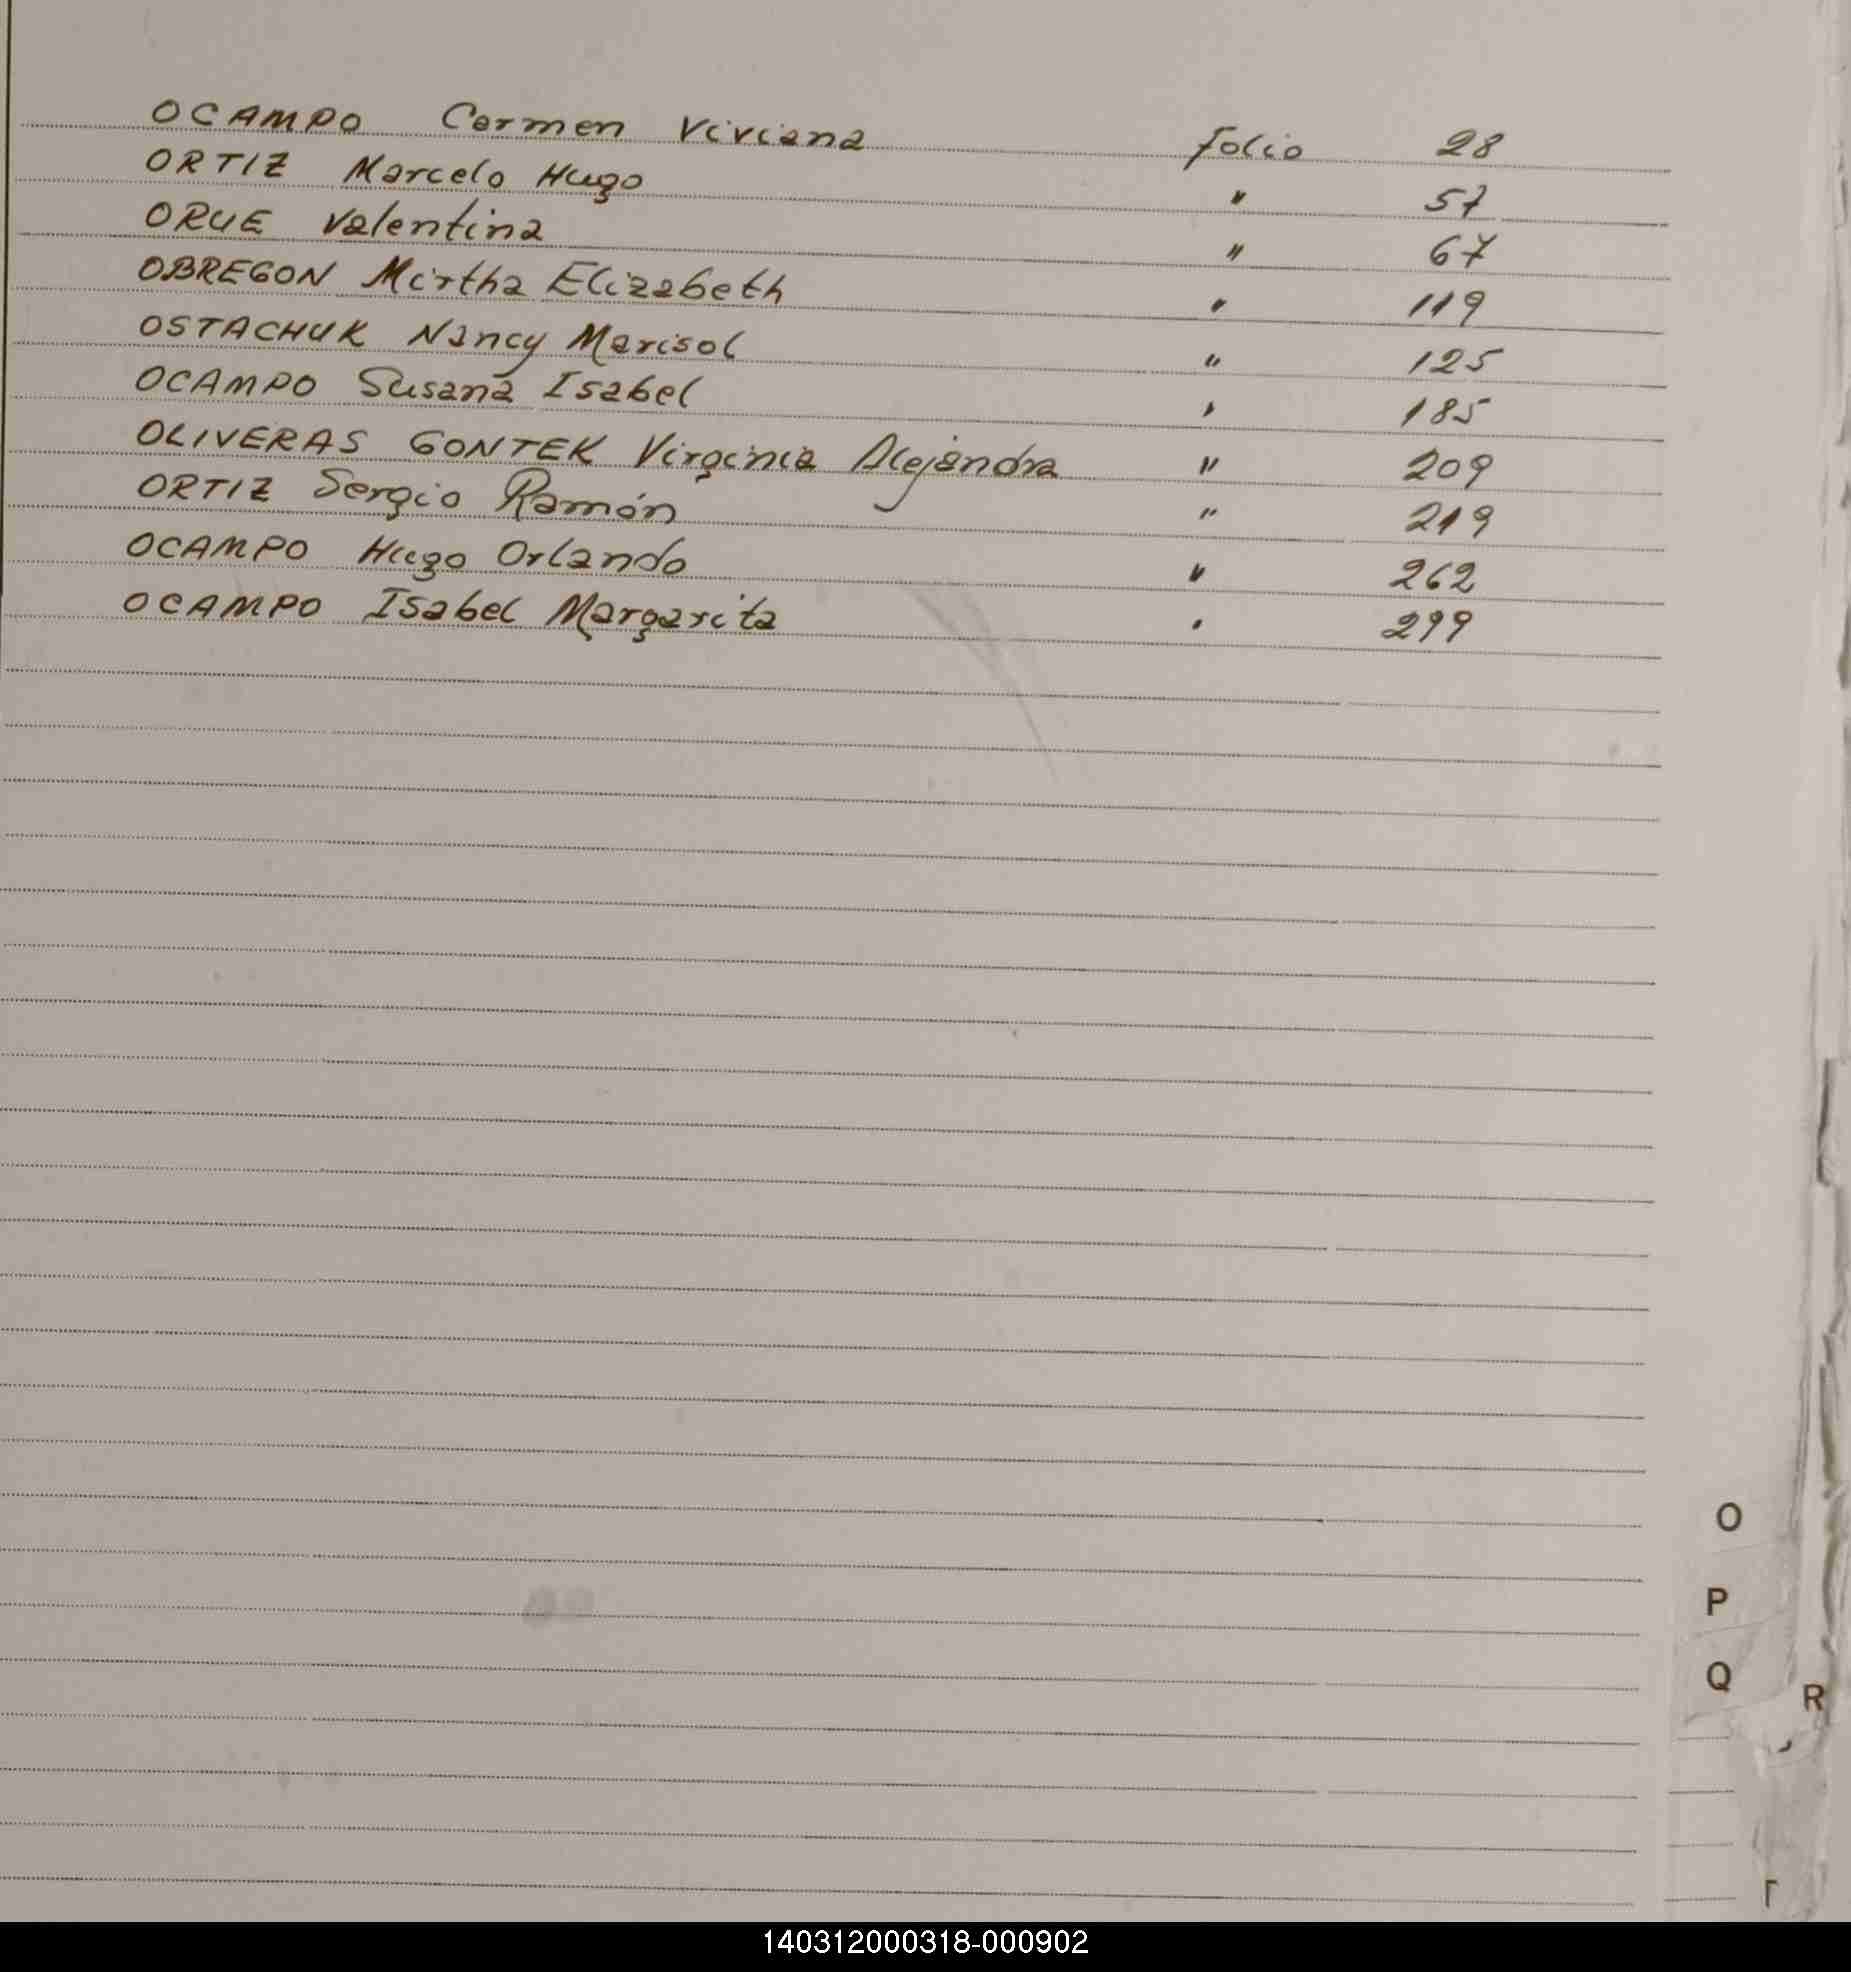 OCAMPO Carmen Viviana folio 28
ORTIZ Marcelo Hugo " 57
ORUE Valentina " 67
OBREGON Mirtha Elizabeth " 119
OSTACHUK Nancy Marisol " 125
OCAMPO Susana Isabel " 185
OLIVERAS GONTEK Virginia Alejandra " 209
ORTIZ Sergio Ramón " 219
OCAMPO Hugo Orlando " 262
OCAMPO Isabel Margarita " 299
O
P
Q
R
T
140312000318-000902